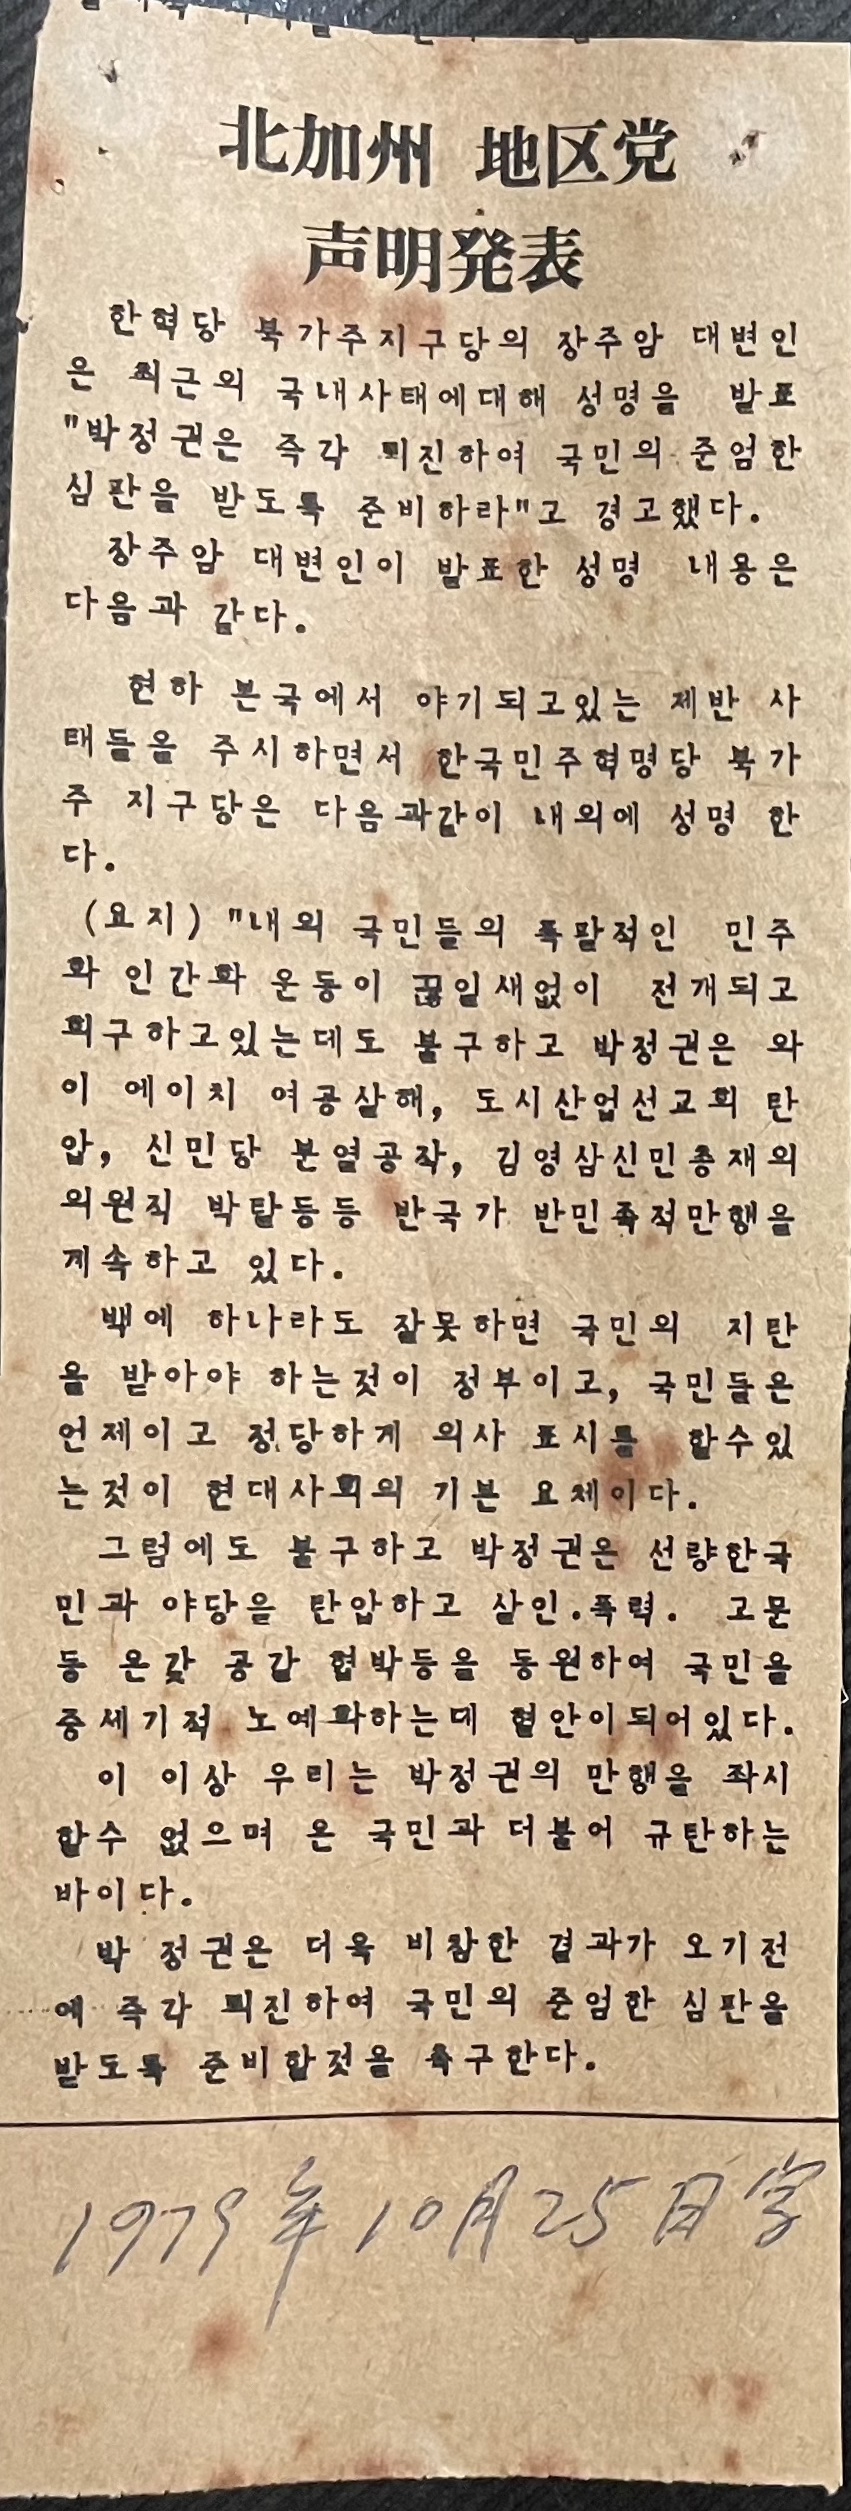 北加州 地区党
声明発表
한혁당 북가주지구당의 장주암 대변인
은 최근의 국내사태에대해 성명을 발표
"박정권은 즉각 퇴진하여 국민의 준엄한
심판을 받도록 준비하라"고 경고했다.
장주암 대변인이 발표한 성명 내용은
다음과 같다.
현하 본국에서 야기되고있는 제반 사
태들을 주시하면서 한국민주혁명당 북가
주 지구당은 다음과같이 내외에 성명 한
다.
(요지) "내외 국민들의 폭팔적인 민주
화 인간화 운동이 끊일새없이 전개되고
희구하고있는데도 불구하고 박정권은 와
이 에이치 여공살해, 도시산업선교회 탄
압, 신민당 분열공작, 김영삼신민총재의
의원직 박탈등등 반국가 반민족적만행을
계속하고 있다.
백에 하나라도 잘못하면 국민의 지탄
을 받아야 하는것이 정부이고, 국민들은
언제이고 정당하게 의사 표시를 할수있
는것이 현대사회의 기본 요체이다.
그럼에도 불구하고 박정권은 선량한국
민과 야당을 탄압하고 살인.폭력. 고문
등 온갖 공갈 협박등을 동원하여 국민을
중세기적 노예화하는데 혈안이되어있다.
이 이상 우리는 박정권의 만행을 좌시
할수 없으며 온 국민과 더불어 규탄하는
바이다.
박 정권은 더욱 비참한 결과가 오기전
에 즉각 퇴진하여 국민의 준엄한 심판을
받도록 준비할것을 촉구한다.
1979年 10月 25日字